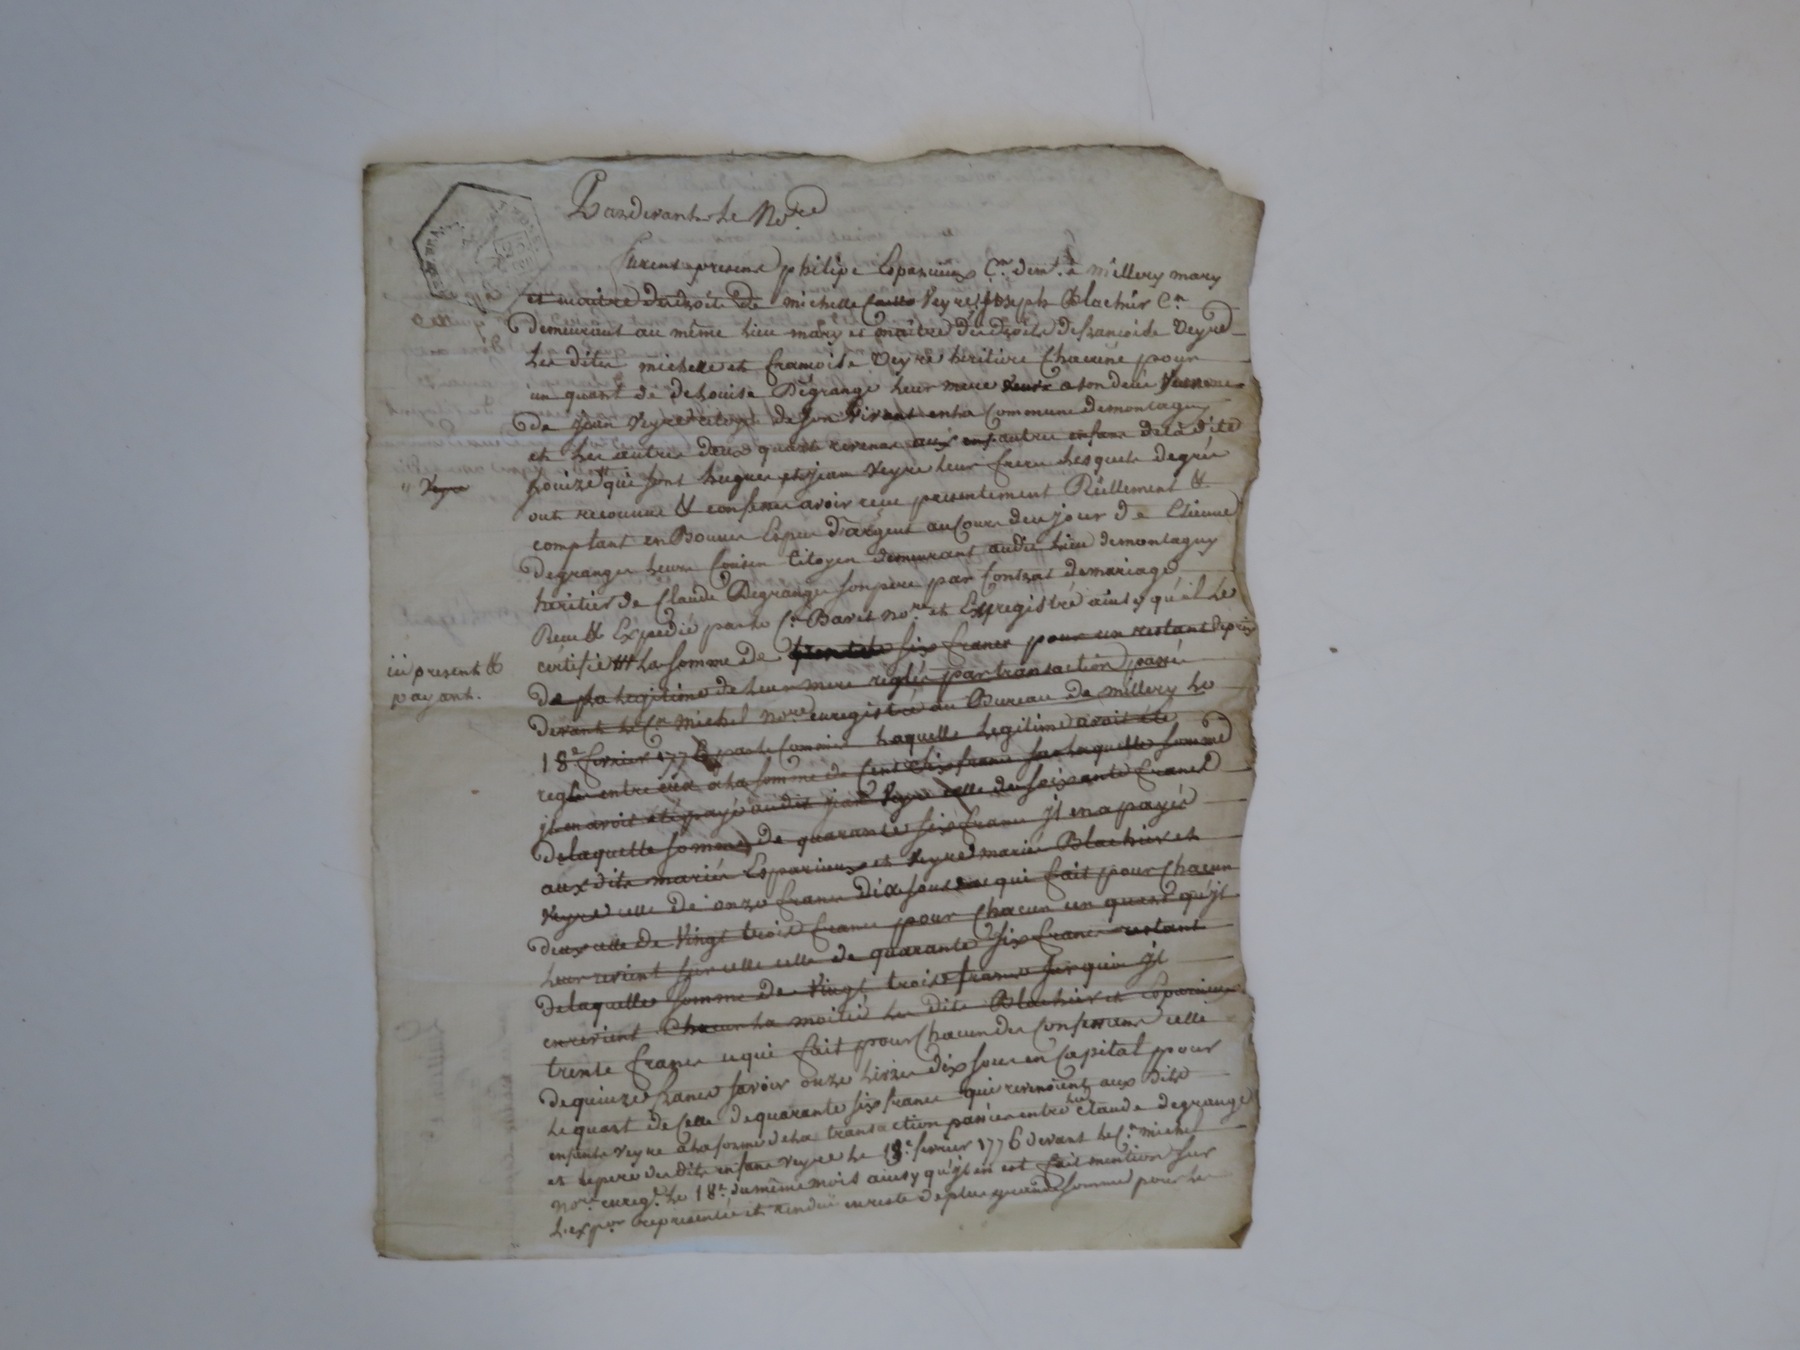 Pardevant Le No.re
furent present philipe Esparieux C.n dem.t à Millery mary
et maitre des droits de michelle Veyre, Joseph Blachier C.n
demeurant au même lieu mary et maître des droits de francoise Veyre
Les dites michelle et francoise Veyre heritiere Chacune pour
un quart de de Louise Degrange leur mere a son deces
de jean Veyre citoyen de son vivant en la Commune de montagny
et Les autres deux quarts revenant aux autres enfans de la dite
Louize qui sont hugues et jean Veyre leur freres Lesquels de gré
" Veyre
ont reconnu & confessé avoir reçu presentement Réellement &
comptant en Bonnes Espece d'argent au Cours de ce jour de Etienne
degrange leur Cousin Citoyen demeurant audit Lieu de montagny
heritier de Claude Degrange son pere par Contrat de mariage
Recu & Expedié par le C.n Baret no.re et Enregistré ainsy qu'il Le
ici present &
payant.
certifie la somme de six francs pour un restant
de la legitime de leur mere reglée par transaction passée
devant le C.n michel no.re enregistré au Bureau de millery le
18.e fevrier 1776 par le Commis Laquelle Legitime avoit été
reglée entre eux a la somme de Cent six francs sur laquelle somme
jl en avoit été payé audit jean Veyre celle de soixante francs
de laquelle somme de quarante six francs jl en a payé
aux dits mariés Esparieux et Veyre mariés Blachier et
Veyre celle de onze francs dix sous qui fait pour Chacun
deux celle de Vingt trois francs pour Chacun un quart qu'jl
Leur revient sur celle de quarante six francs restant
de laquelle somme de Vingt trois francs
en revient Chacun la moitié Les dits Blachier et Esparieux
trente francs ce qui fait pour Chacun des Confessans celle
de quinze francs savoir onze Livres dix sous en Capital pour
le quart de Celle de quarante six francs qui revenoient aux dits
enfants Veyre a la forme de la transaction passée entre Claude degrange
et le pere des dits enfans Veyre le 18.e fevrier 1776 devant le C.n michel
no.re enreg.é Le 18.e du même mois ainsy qu'jl en est fait mention sur
L'exp.on representée et rendue en reste de plus grande somme pour le